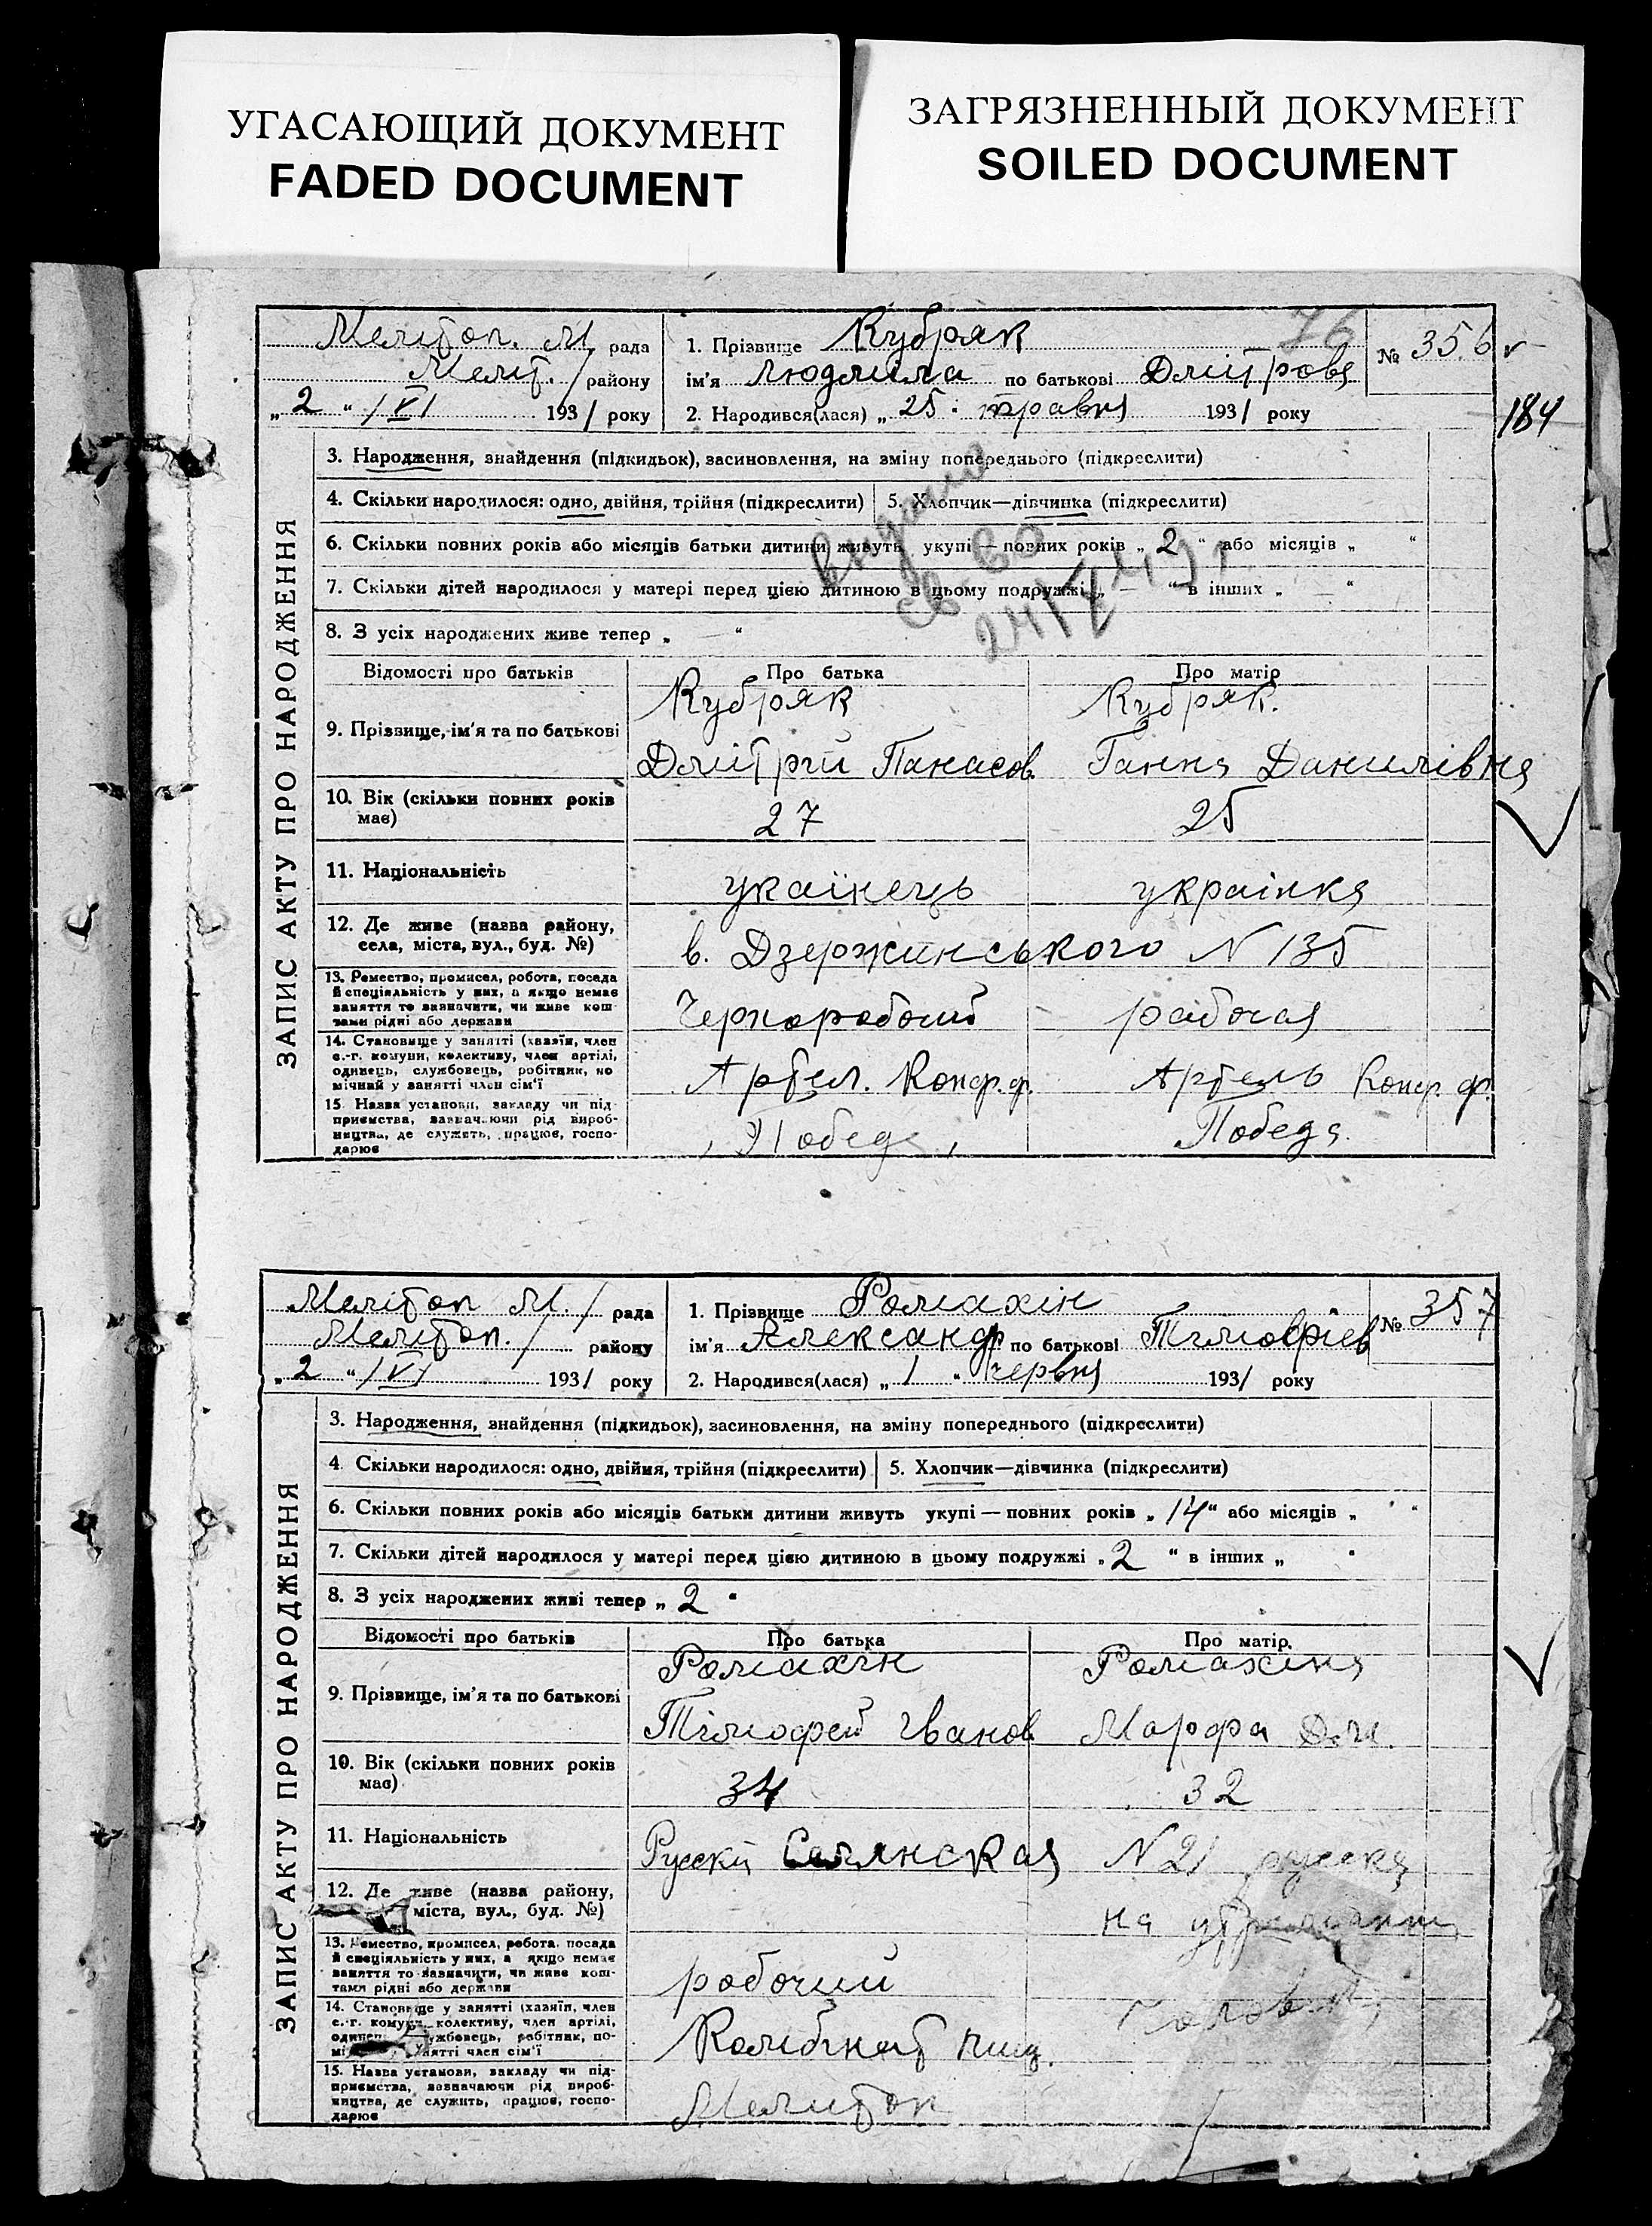 УГАСАЮЩИЙ ДОКУМЕНТ
FADED DOCUMENT
ЗАГРЯЗНЕННЫЙ ДОКУМЕНТ
SOILED DOCUMENT
76
Меліт оп. М. рада
Меліт. району
„ 2 “ VI 1931 року
1. Прізвище Кубряк
ім'я Людміла по батькові Дмітровa
2. Народився(лася) „ 25 “ травня 1931 року
№ 356
184
ЗАПИС АКТУ ПРО НАРОДЖЕННЯ
3. Народження, знайдення (підкидьок), засиновлення, на зміну попереднього (підкреслити)
4. Скільки народилося: одно, двійня, трійня (підкреслити) 5. Хлопчик—дівчинка (підкреслити)
6. Скільки повних років або місяців батьки дитини живуть укупі — повних років „ 2 “ або місяців „ “
7. Скільки дітей народилося у матері перед цією дитиною в цьому подружжі „ — “ в інших „ — “
8. З усіх народжених живе тепер „ — “
Відомості про батьків Про батька Про матір
9. Прізвище, ім'я та по батькові
Кубряк Кубряк.
Дмітрій Панасов. Ганна Данилівна
10. Вік (скільки повних років має) 27 25
11. Національність укаїнець украінка
12. Де живе (назва району, села, міста, вул., буд. №) в. Дзержинського N 135
13. Ремество, промисел, робота, посада й спеціяльність у них, а якщо немає заняття то зазначити, чи живе коштами рідні або держави
Чернорабочий рабочая
14. Становище у занятті (хазяїн, член с.-г. комуни, колективу, член артілі, одинець, службовець, робітник, помічний у занятті член сім'ї
Артел. Конф. ф. Артель Конф. ф.
15. Назва установи, закладу чи підприємства, зазначаючи рід виробництва, де служить, працює, господарює
„Победа„ Победа.
Мелітоп М. рада
Мелітоп. району
„ 2 “ VI 1931 року
1. Прізвище Ромахін
ім'я Александр по батькові Тімофіев
2. Народився(лася) „ 1 “ червня 1931 року
№ 357
ЗАПИС АКТУ ПРО НАРОДЖЕННЯ
3. Народження, знайдення (підкидьок), засиновлення, на зміну попереднього (підкреслити)
4. Скільки народилося: одно, двійня, трійня (підкреслити) 5. Хлопчик—дівчинка (підкреслити)
6. Скільки повних років або місяців батьки дитини живуть укупі — повних років „ 14 “ або місяців „ “
7. Скільки дітей народилося у матері перед цією дитиною в цьому подружжі „ 2 “ в інших „ “
8. З усіх народжених живі тепер „ 2 “
Відомості про батьків Про батька Про матір
9. Прізвище, ім'я та по батькові
Ромахін Ромахина
Тімофей Іванов Марфа
10. Вік (скільки повних років має) 34 32
11. Національність Русски Селянская N 21 русска
12. Де живе (назва району, міста, вул., буд. №)
13. Ремество, промисел, робота, посада й спеціяльність у них, а якщо немає заняття то зазначити, чи живе коштами рідні або держави
рабочий
14. Становище у занятті (хазяїн, член с.-г. комуни, колективу, член артілі, одинець, службовець, робітник, помічний у занятті член сім'ї
Комбінат пищ.
15. Назва установи, закладу чи підприємства, зазначаючи рід виробництва, де служить, працює, господарює
Мелитоп